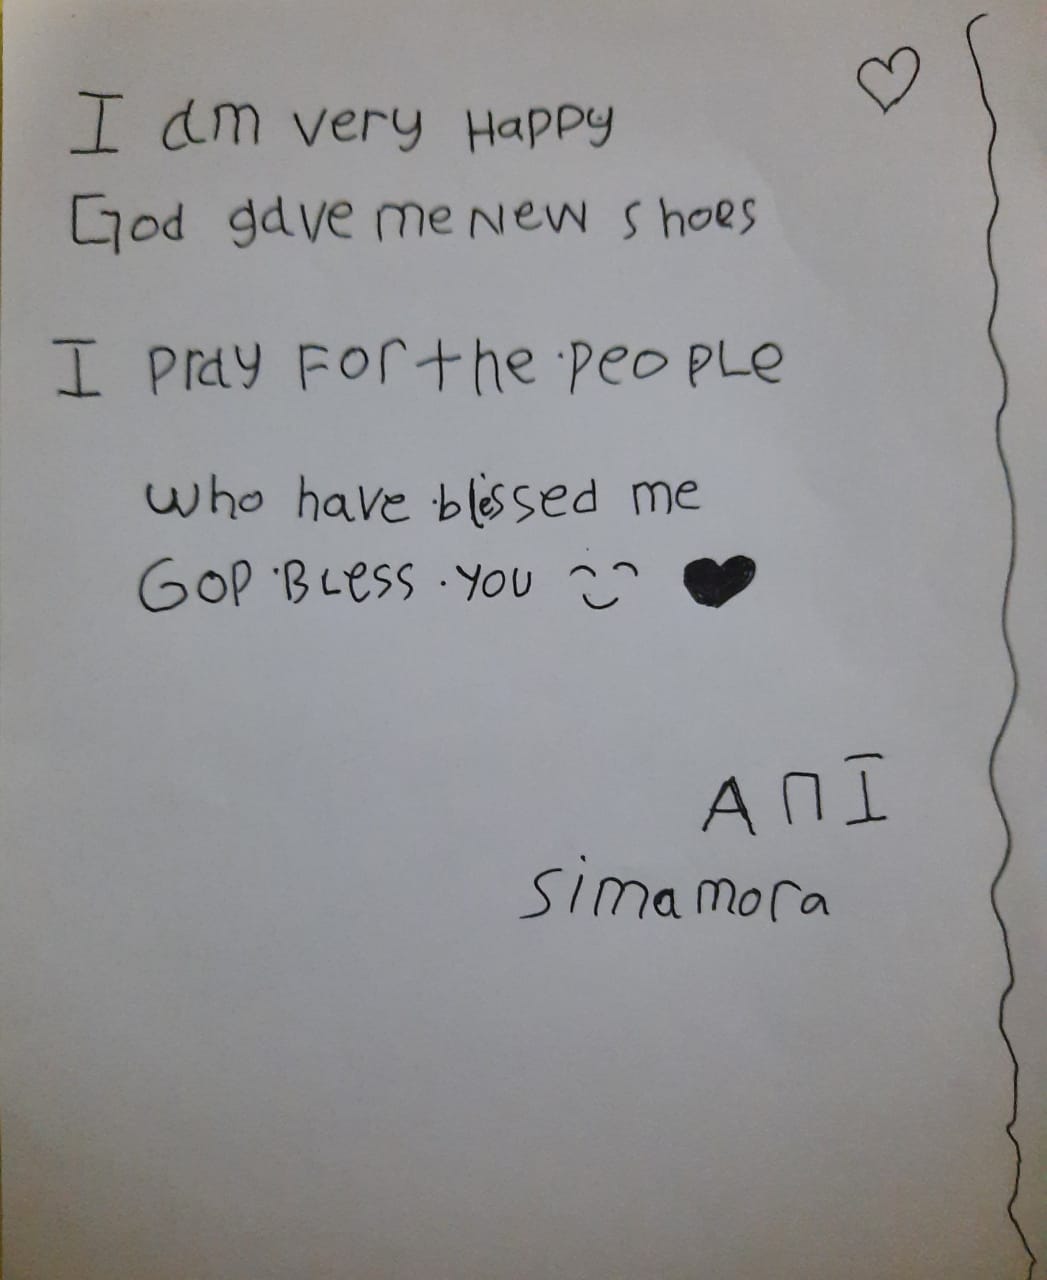 I am very Happy
God gave me New shoes
I pray For the people
who have blessed me
GOP Bless you
ANI
Simamora